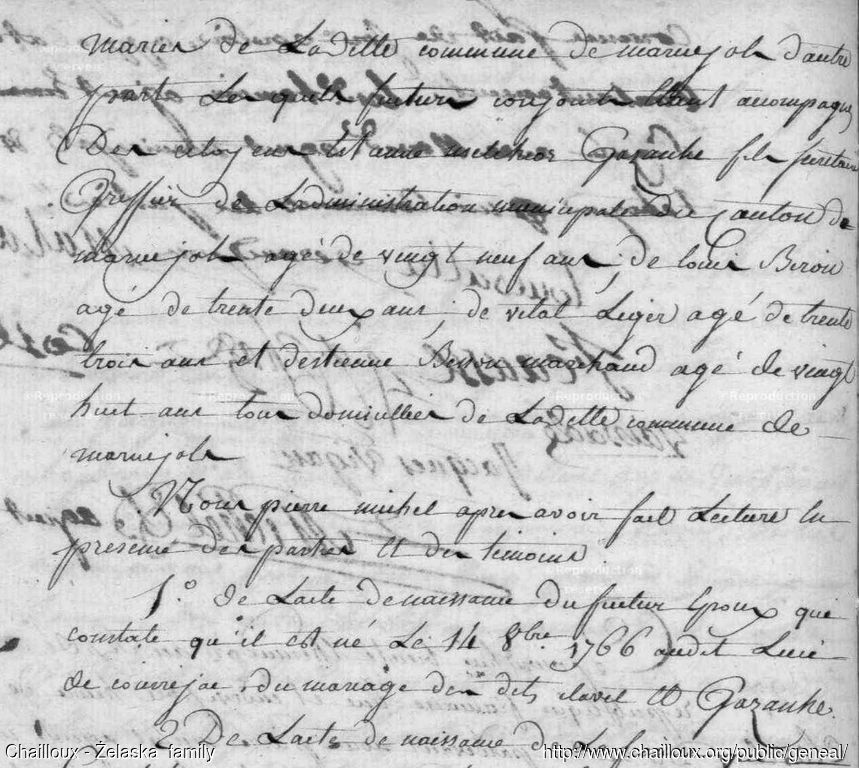 mariés de Ladille commune de maruejols d'autre
parte Les quels futurs conjoints étant acompagnés
Des citoyens Estienne melchior Gazanhe fils secretaire
Greffier de Ladministration municipale du Canton de
maruejols agé de vingt neuf ans, de louis Biron
agé de trente deux ans, de vital Leger agé de trente
trois ans et destienne marchand agé de vingt
huit ans tous domicilliés de Ladille commune de
maruejols
Nous pierre michel apres avoir fait Lecture en
presence des parties et des temoins
1.° de Lacte de naissance du futur Epoux qui
constate qu'il est né Le 14 8bre 1766 audit Lieu
de du mariage des dits clavel et Gazanhe
2 De Lacte de naissance de La
Chailloux - Želaska family
http://www.chailloux.org/public/geneal/